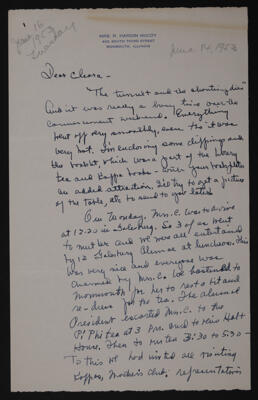 MRS. R. HANSON McCOY
402 SOUTH THIRD STREET
MONMOUTH, ILLINOIS
June 16
1953
Tuesday
June 14, 1953
Dear Cleora -
"The tumult and the shouting dies"
And it was really a busy time over the
commencement weekend. Everything
went off very smoothly, even tho it was
very hot. I'm enclosing some clippings and
the booklet, which was a part of the library
tea and Kappa books - 
an added attraction. I'll try to get a picture
of the table, etc to send to you later.
On Tuesday, Mrs. C. was to arrive
at 12:20 in Galesburg. So 3 of us went
to meet her and we were all entertained
by 12 Galesburg Alumnae at luncheon. This
was very nice and everyone was
charmed by Mrs. C. We hastened to
Monmouth for her to rest a bit and
re-dress for the tea. The alumnae
President escorted Mrs. C. to the
Pi Phi tea at 3 P.M. and to Holt
House. Then to ours 3:30 to 5:30 -
To this we had invited all visiting
Kappas, Mothers Club, representatives